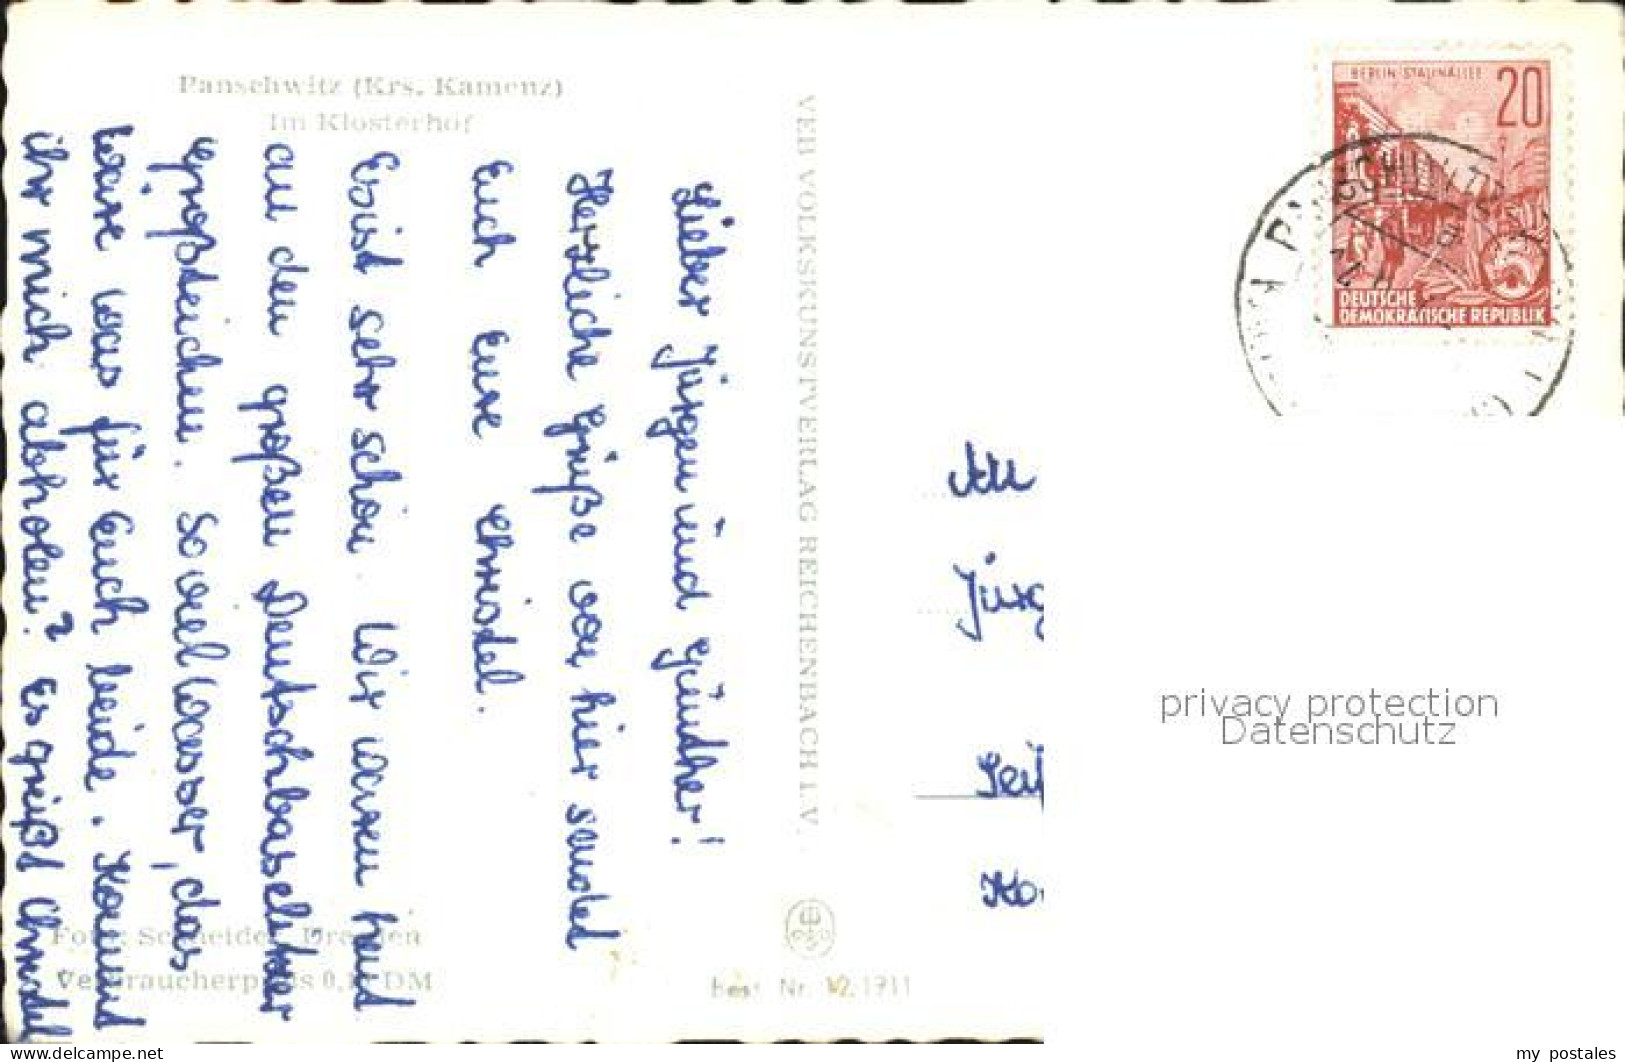 Panschwitz (Krs. Kamenz)
Im Klosterhof
Lieber Jürgen und Günther!
Herzliche Grüße von hier sendet
Euch Eure Christel.
Es ist sehr schön. Wir waren heut
an den großen Deutschbaselitzer
Großteichen. Soviel Wasser, das
wäre was für Euch beide. Kommt
ihr mich abholen? Es grüßt Christel
Foto: Schneider, Dresden
Verbraucherpreis 0, DM
VEB VOLKSKUNSTVERLAG REICHENBACH I. V.
Best. Nr. V2 1911
BERLIN-STALINALLEE
20
DEUTSCHE
DEMOKRATISCHE REPUBLIK
PANSCHWITZ
An
Jürg
privacy protection
Datenschutz
my postales